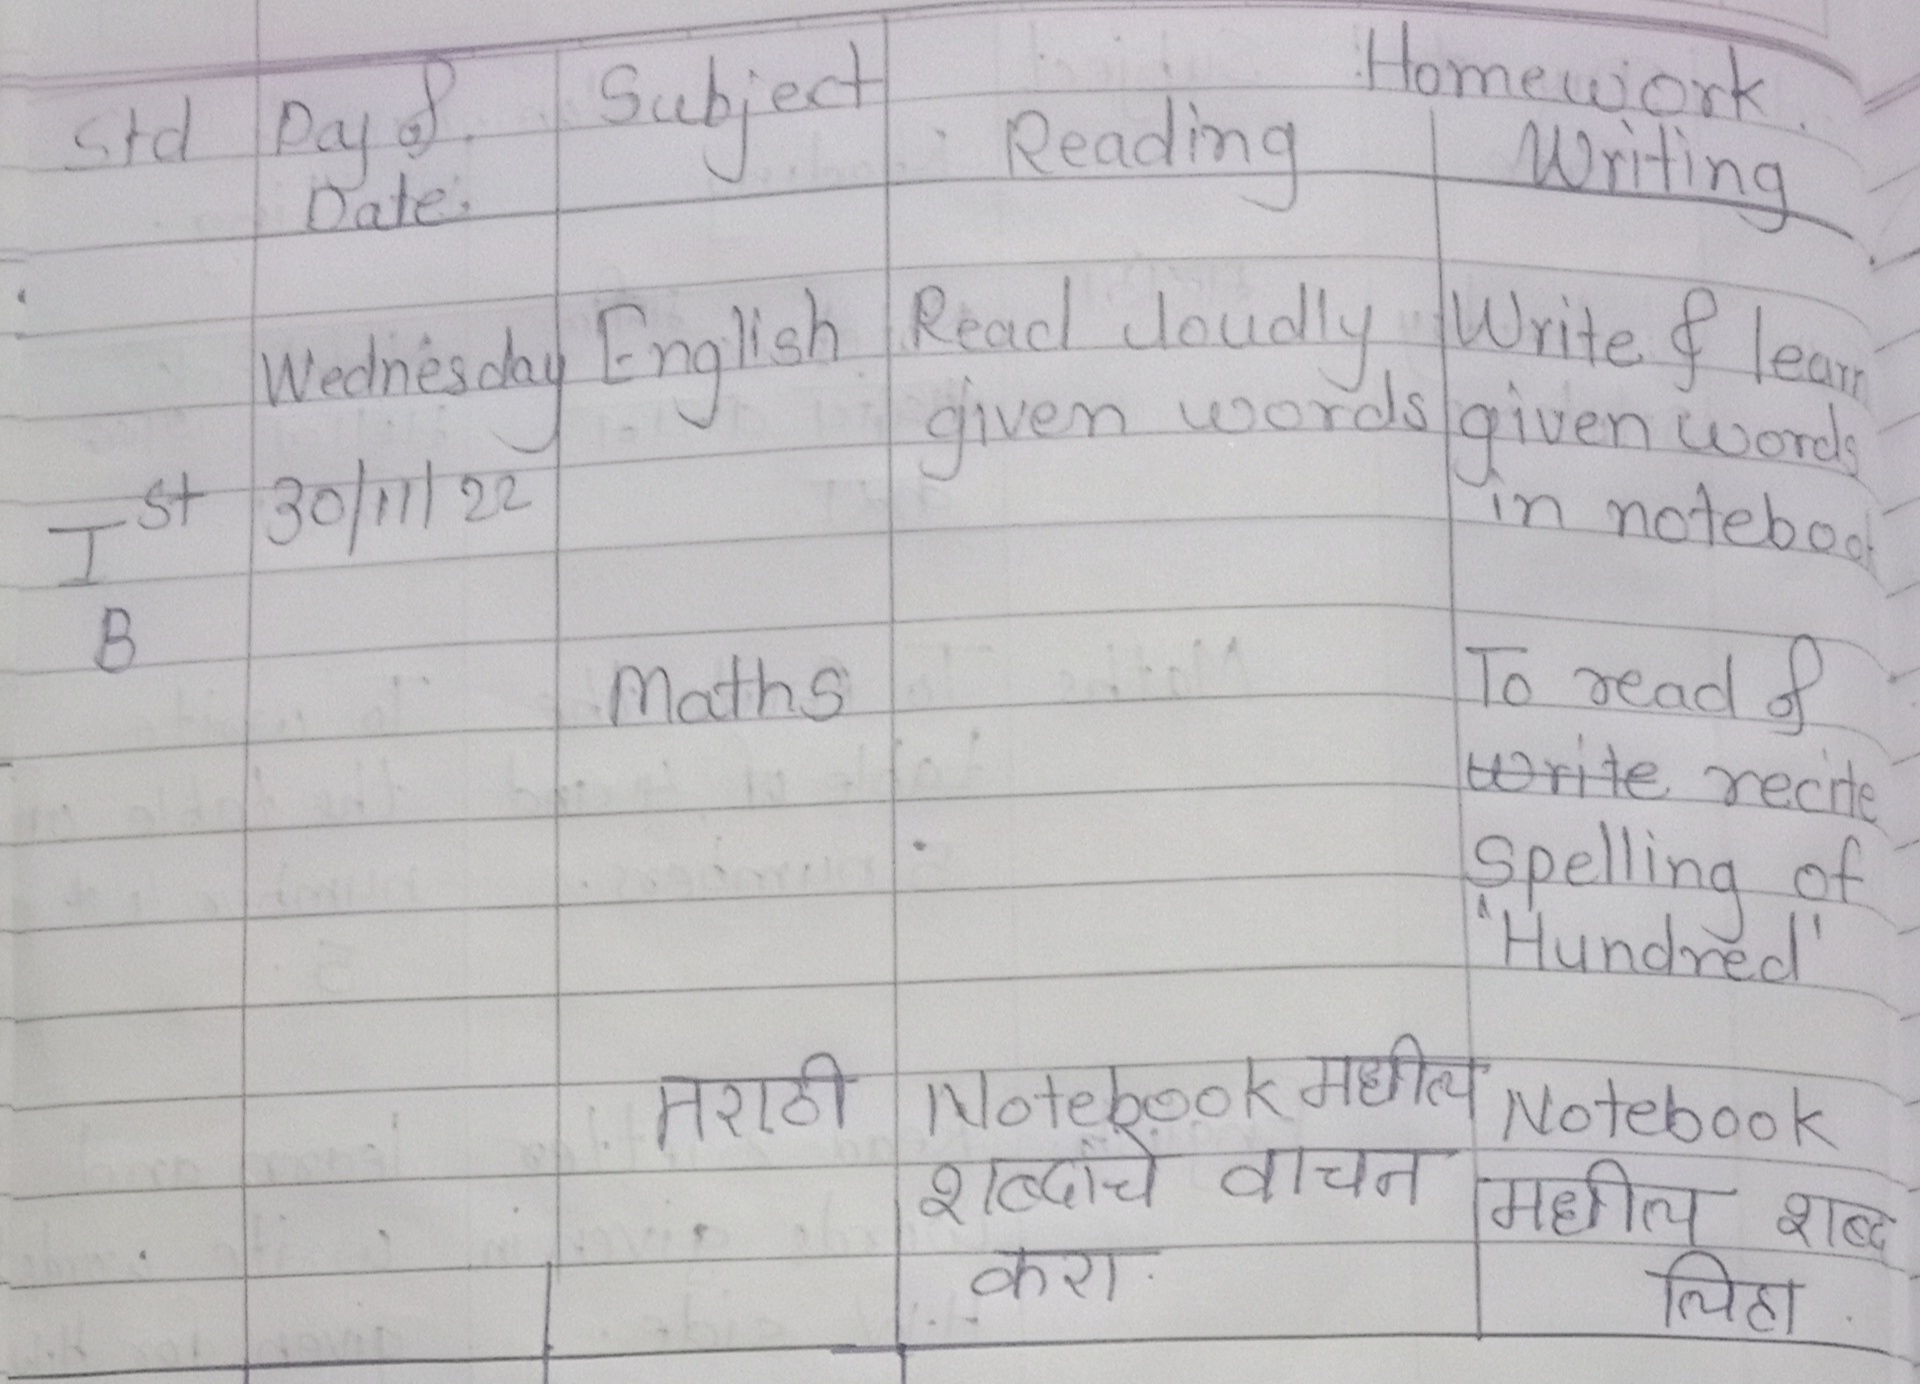 Homework
Std Day & Subject Reading Writing
Date.
Wednesday English Read loudly Write & learn
given words given words
Ist 30/11/22 in noteboo
B
Maths To read &
write recite
Spelling of
"Hundred'
मराठी Notebook मधील Notebook
शब्दांचे वाचन मधील शब्द
करा. लिहा.